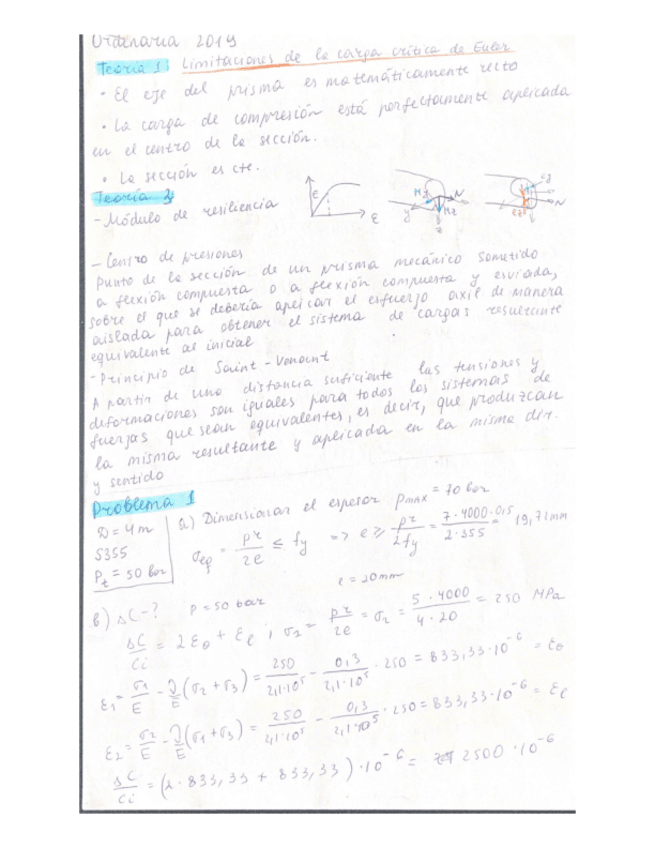 Ordinaria 2019
Teoría 1: Limitaciones de la carga crítica de Euler
• El eje del prisma es matemáticamente recto
• La carga de compresión está perfectamente aplicada
en el centro de la sección.
• La sección es cte.
Teoría 2
- Módulo de resiliencia
- Centro de presiones
Punto de la sección de un prisma mecánico sometido
a flexión compuesta o a flexión compuesta y esviada,
sobre el que se debería aplicar el esfuerzo axil de manera
aislada para obtener el sistema de cargas resultante
equivalente al inicial
- Principio de Saint-Venant
A partir de una distancia suficiente las tensiones y
deformaciones son iguales para todos los sistemas de
fuerzas que sean equivalentes, es decir, que produzcan
la misma resultante y aplicada en la misma dir.
y sentido
Problema 1
D = 4 m
S355
Pt = 50 bar
a) Dimensionar el espesor Pmax = 70 bar
σeq = pr/2e ≤ fy => e ≥ pr/2fy = 7·4000·0,5/2·355 = 19,71mm
e = 20mm
b) ΔC-? P = 50 bar
ΔC/Ci = 2εθ + εl ; σ1 = pr/2e = σ2 = 5·4000/4·20 = 250 MPa
ε1 = σ1/E - ν/E(σ2+σ3) = 250/2,1·10⁵ - 0,3/2,1·10⁵ · 250 = 833,33·10⁻⁶ = εθ
ε2 = σ2/E - ν/E(σ1+σ3) = 250/2,1·10⁵ - 0,3/2,1·10⁵ · 250 = 833,33·10⁻⁶ = εl
ΔC/Ci = (2·833,33 + 833,33)·10⁻⁶ = 2500·10⁻⁶